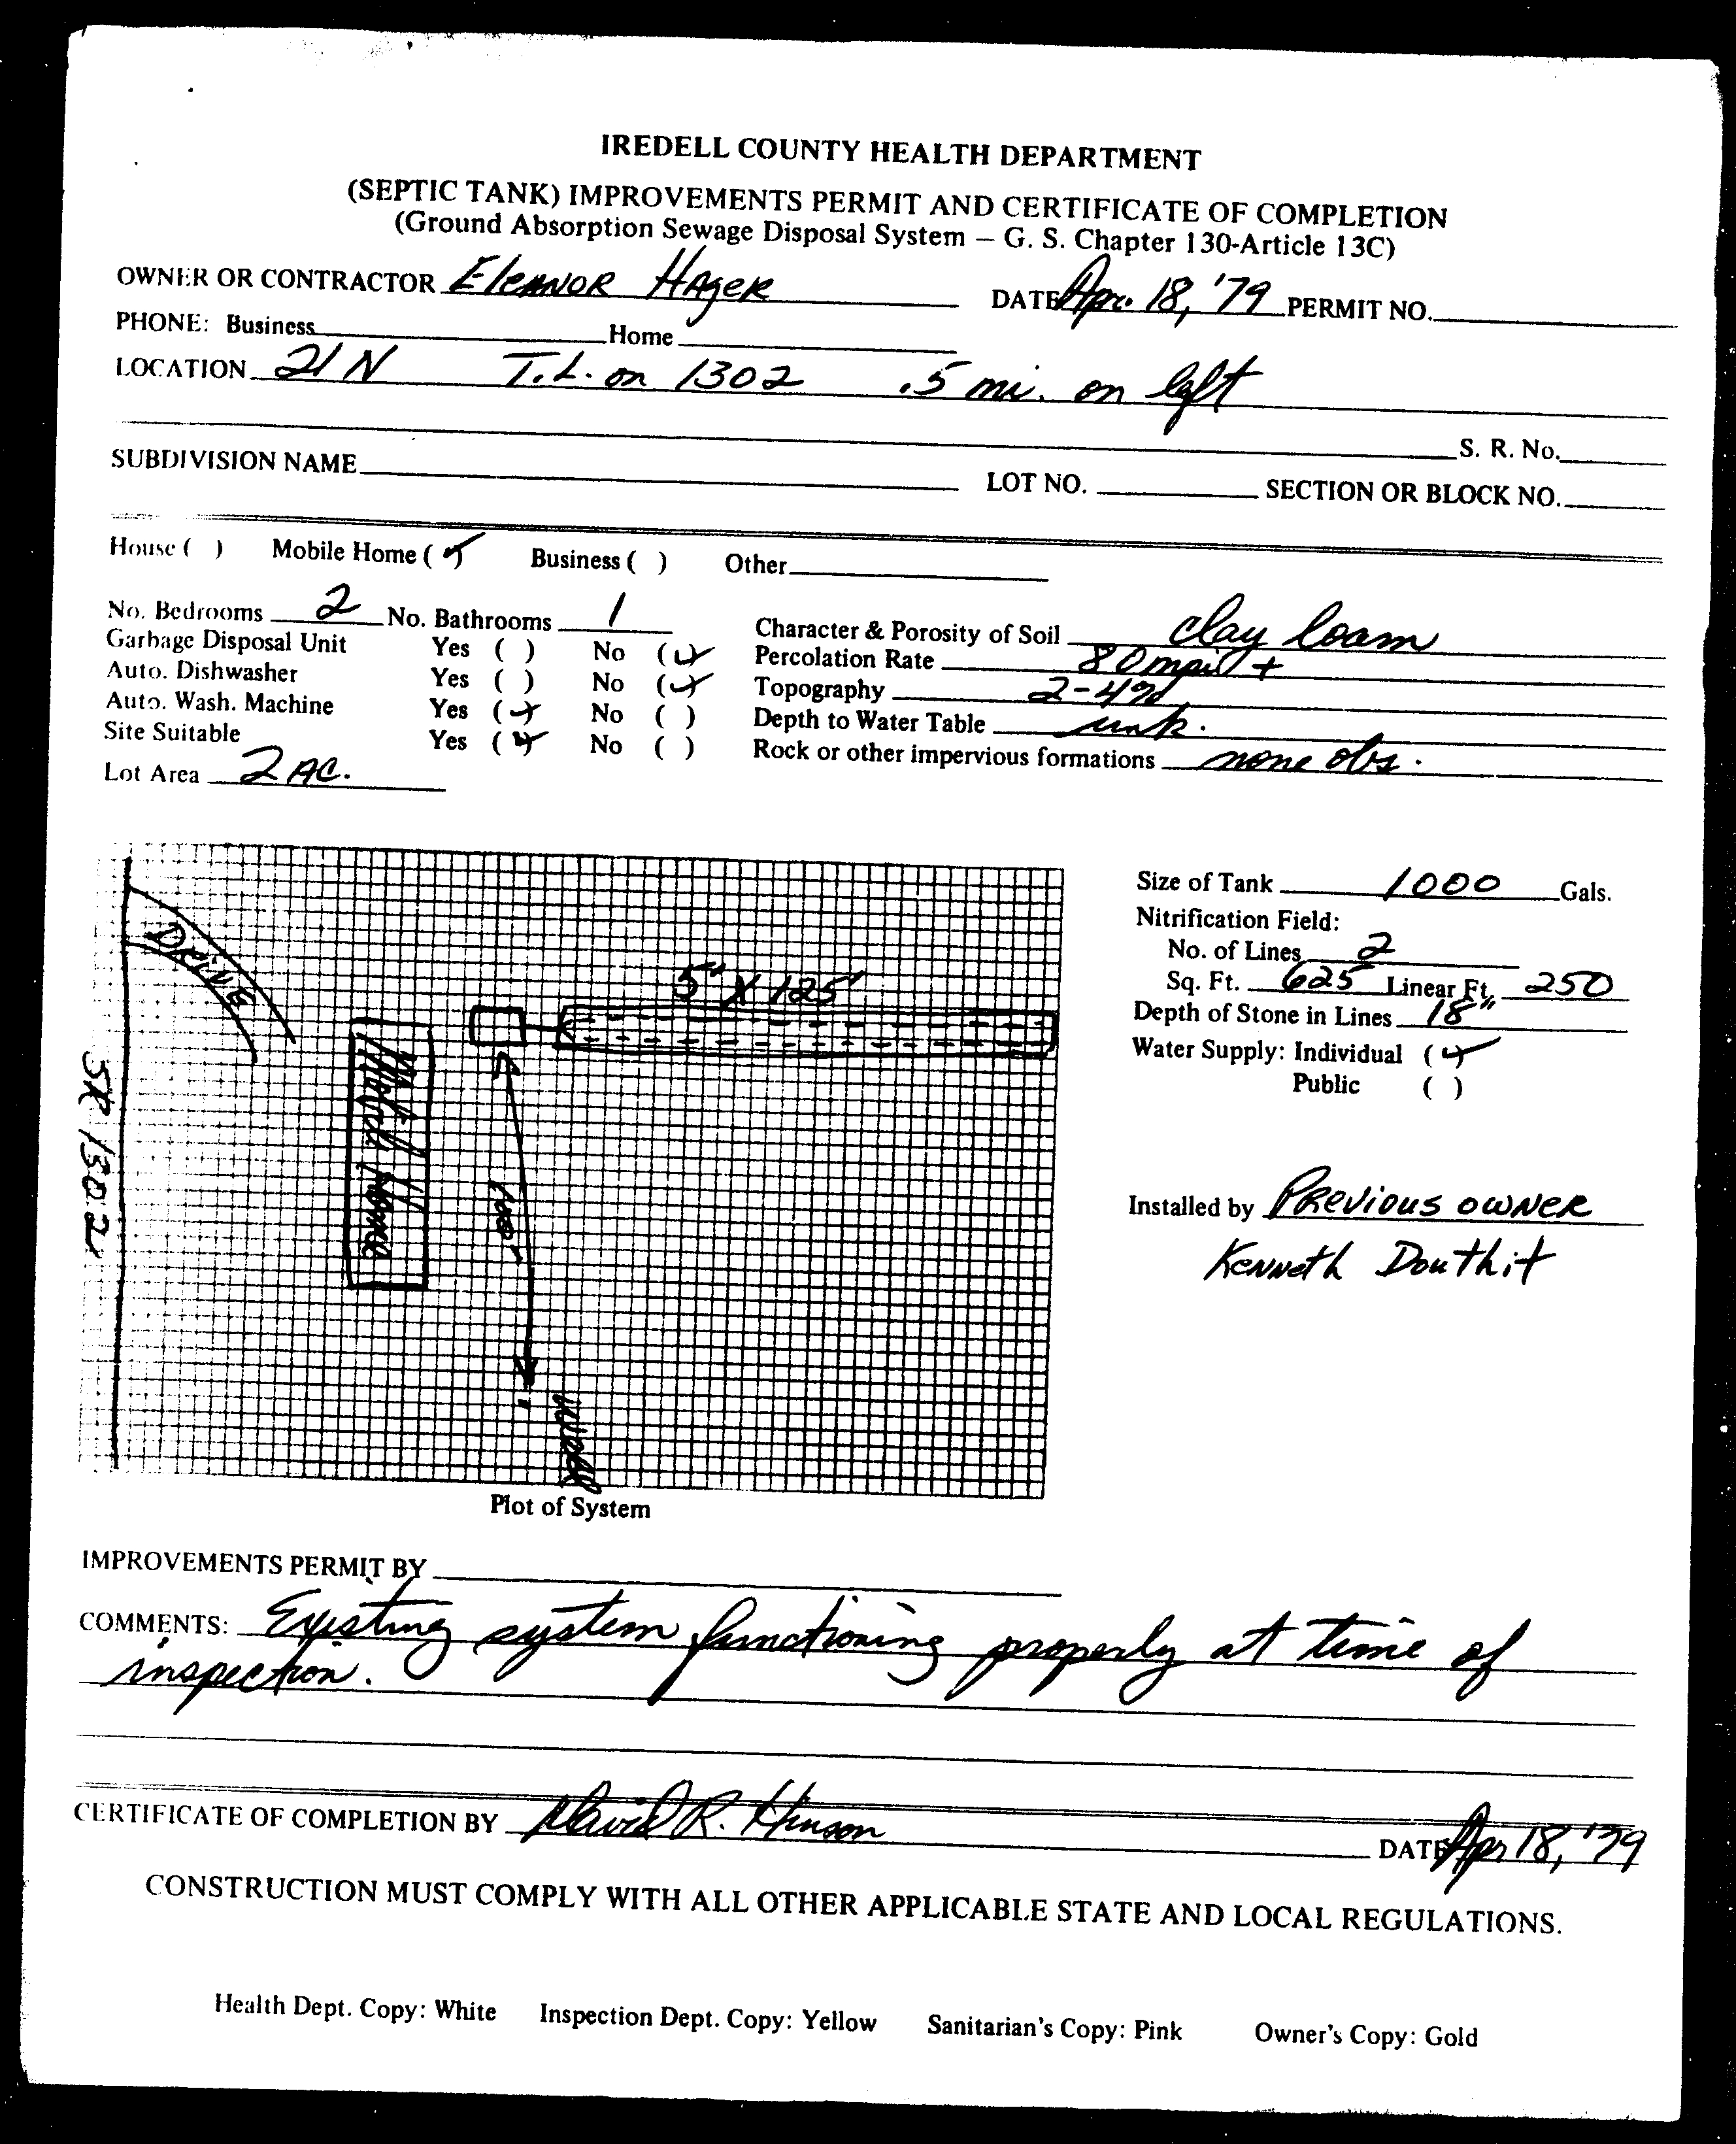 IREDELL COUNTY HEALTH DEPARTMENT
(SEPTIC TANK) IMPROVEMENTS PERMIT AND CERTIFICATE OF COMPLETION
(Ground Absorption Sewage Disposal System – G. S. Chapter 130-Article 13C)
OWNER OR CONTRACTOR Eleanor Hager DATE Apr. 18, '79 PERMIT NO.
PHONE: Business Home
LOCATION 21 N T.L. on 1302 .5 mi. on left
S. R. No.
SUBDIVISION NAME LOT NO. SECTION OR BLOCK NO.
House ( ) Mobile Home (✓) Business ( ) Other
No. Bedrooms 2 No. Bathrooms 1
Garbage Disposal Unit Yes ( ) No (✓)
Auto. Dishwasher Yes ( ) No (✓)
Auto. Wash. Machine Yes (✓) No ( )
Site Suitable Yes (✓) No ( )
Lot Area 2 AC.
Character & Porosity of Soil clay loam
Percolation Rate 80 mpi +
Topography 2-4%
Depth to Water Table unk.
Rock or other impervious formations none obs.
DRIVE
SR 1302
Mobile Home
5' X 125'
100'
Well
Plot of System
Size of Tank 1000 Gals.
Nitrification Field:
No. of Lines 2
Sq. Ft. 625 Linear Ft. 250
Depth of Stone in Lines 18"
Water Supply: Individual (✓)
Public ( )
Installed by Previous owner
Kenneth Douthit
IMPROVEMENTS PERMIT BY
COMMENTS: Existing system functioning properly at time of
inspection.
CERTIFICATE OF COMPLETION BY David R. Hinson DATE Apr 18, '79
CONSTRUCTION MUST COMPLY WITH ALL OTHER APPLICABLE STATE AND LOCAL REGULATIONS.
Health Dept. Copy: White Inspection Dept. Copy: Yellow Sanitarian's Copy: Pink Owner's Copy: Gold